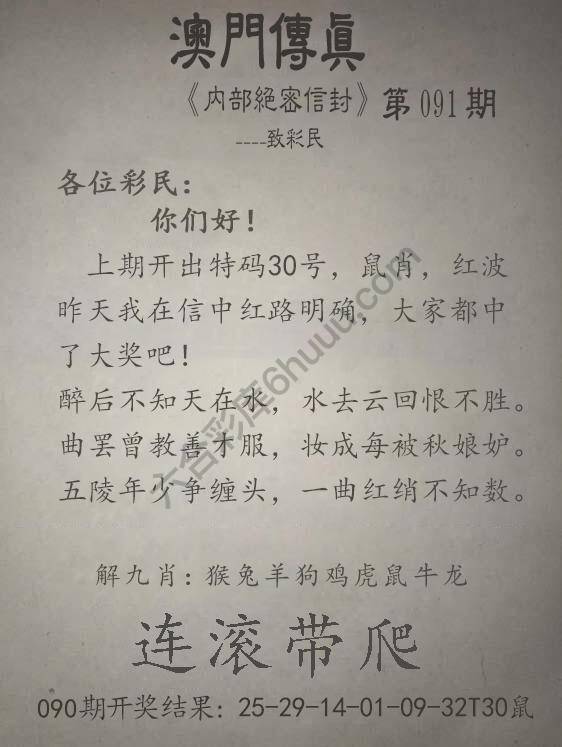 澳門傳真
《内部絕密信封》第091期
----致彩民
各位彩民：
你们好！
上期开出特码30号，鼠肖，红波
昨天我在信中红路明确，大家都中
了大奖吧！
醉后不知天在水，水去云回恨不胜。
曲罢曾教善才服，妆成每被秋娘妒。
五陵年少争缠头，一曲红绡不知数。
六合彩库6huuu.com
解九肖：猴兔羊狗鸡虎鼠牛龙
连滚带爬
090期开奖结果：25-29-14-01-09-32T30鼠